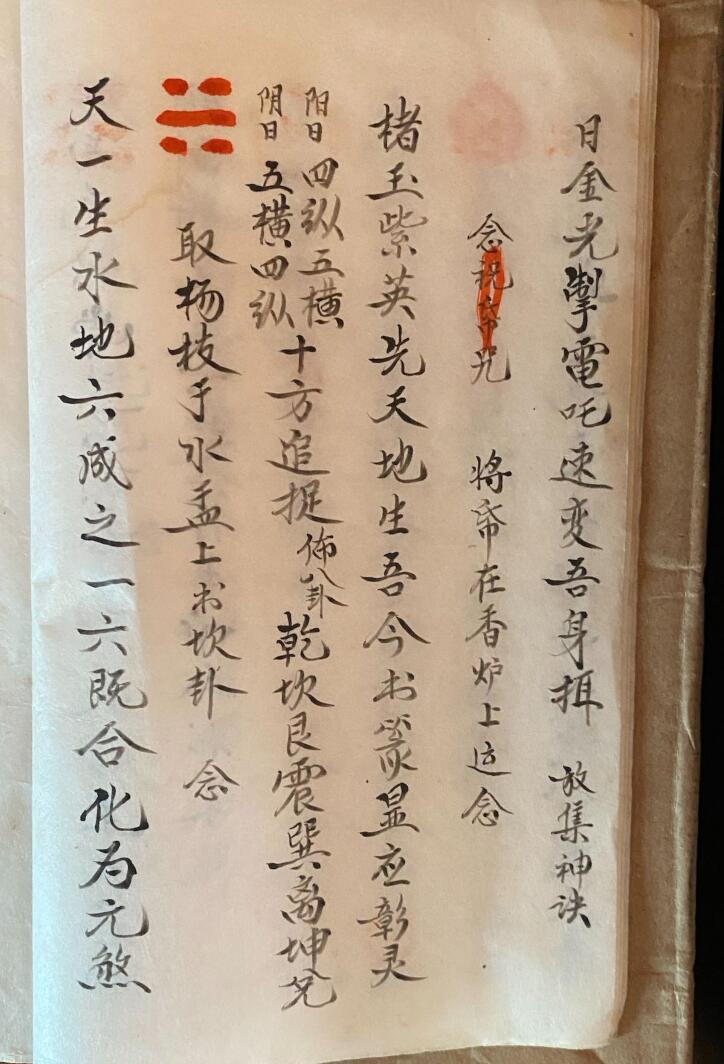 日金光掣電吒速变吾身揖 放集神诀
念祝帛咒 将帛在香炉上运念
楮玉紫英先天地生吾今书篆显应彰灵
阳日四纵五横
阴日五横四纵
十方追捉佈八卦乾坎艮震巽离坤兑
取杨枝于水盂上书坎卦 念
天一生水地六成之一六既合化为元煞